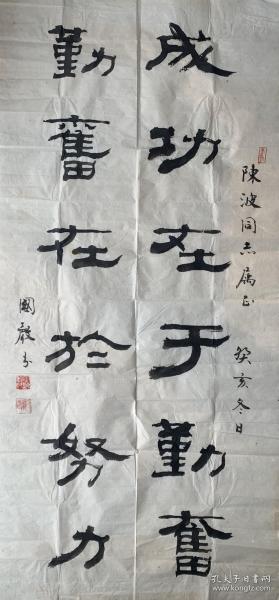 陳波同志属正 癸亥冬日
成功在于勤奮
勤奮在於努力
國嚴书
孔夫子旧书网